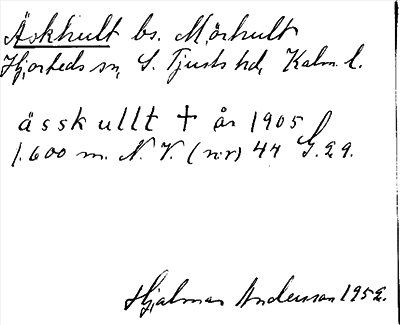 Äskhult bs. Mörhult
Hjorteds sn, S. Tjusts hd, Kalm. l.
ässkullt † år 1905
1.600 m. N. V. (nr) 44 G. 29.
Hjalmar Andersson 1952.